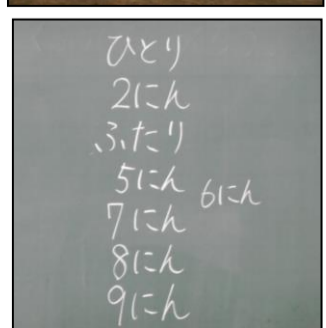 ひとり
2にん
ふたり
5にん
6にん
7にん
8にん
9にん